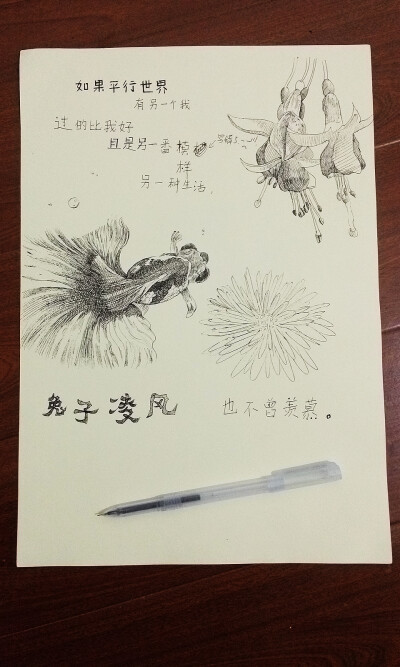 如果平行世界
有另一个我
过的比我好
且是另一番模
写错了
样
另一种生活。
兔子凌风
也不曾羡慕。